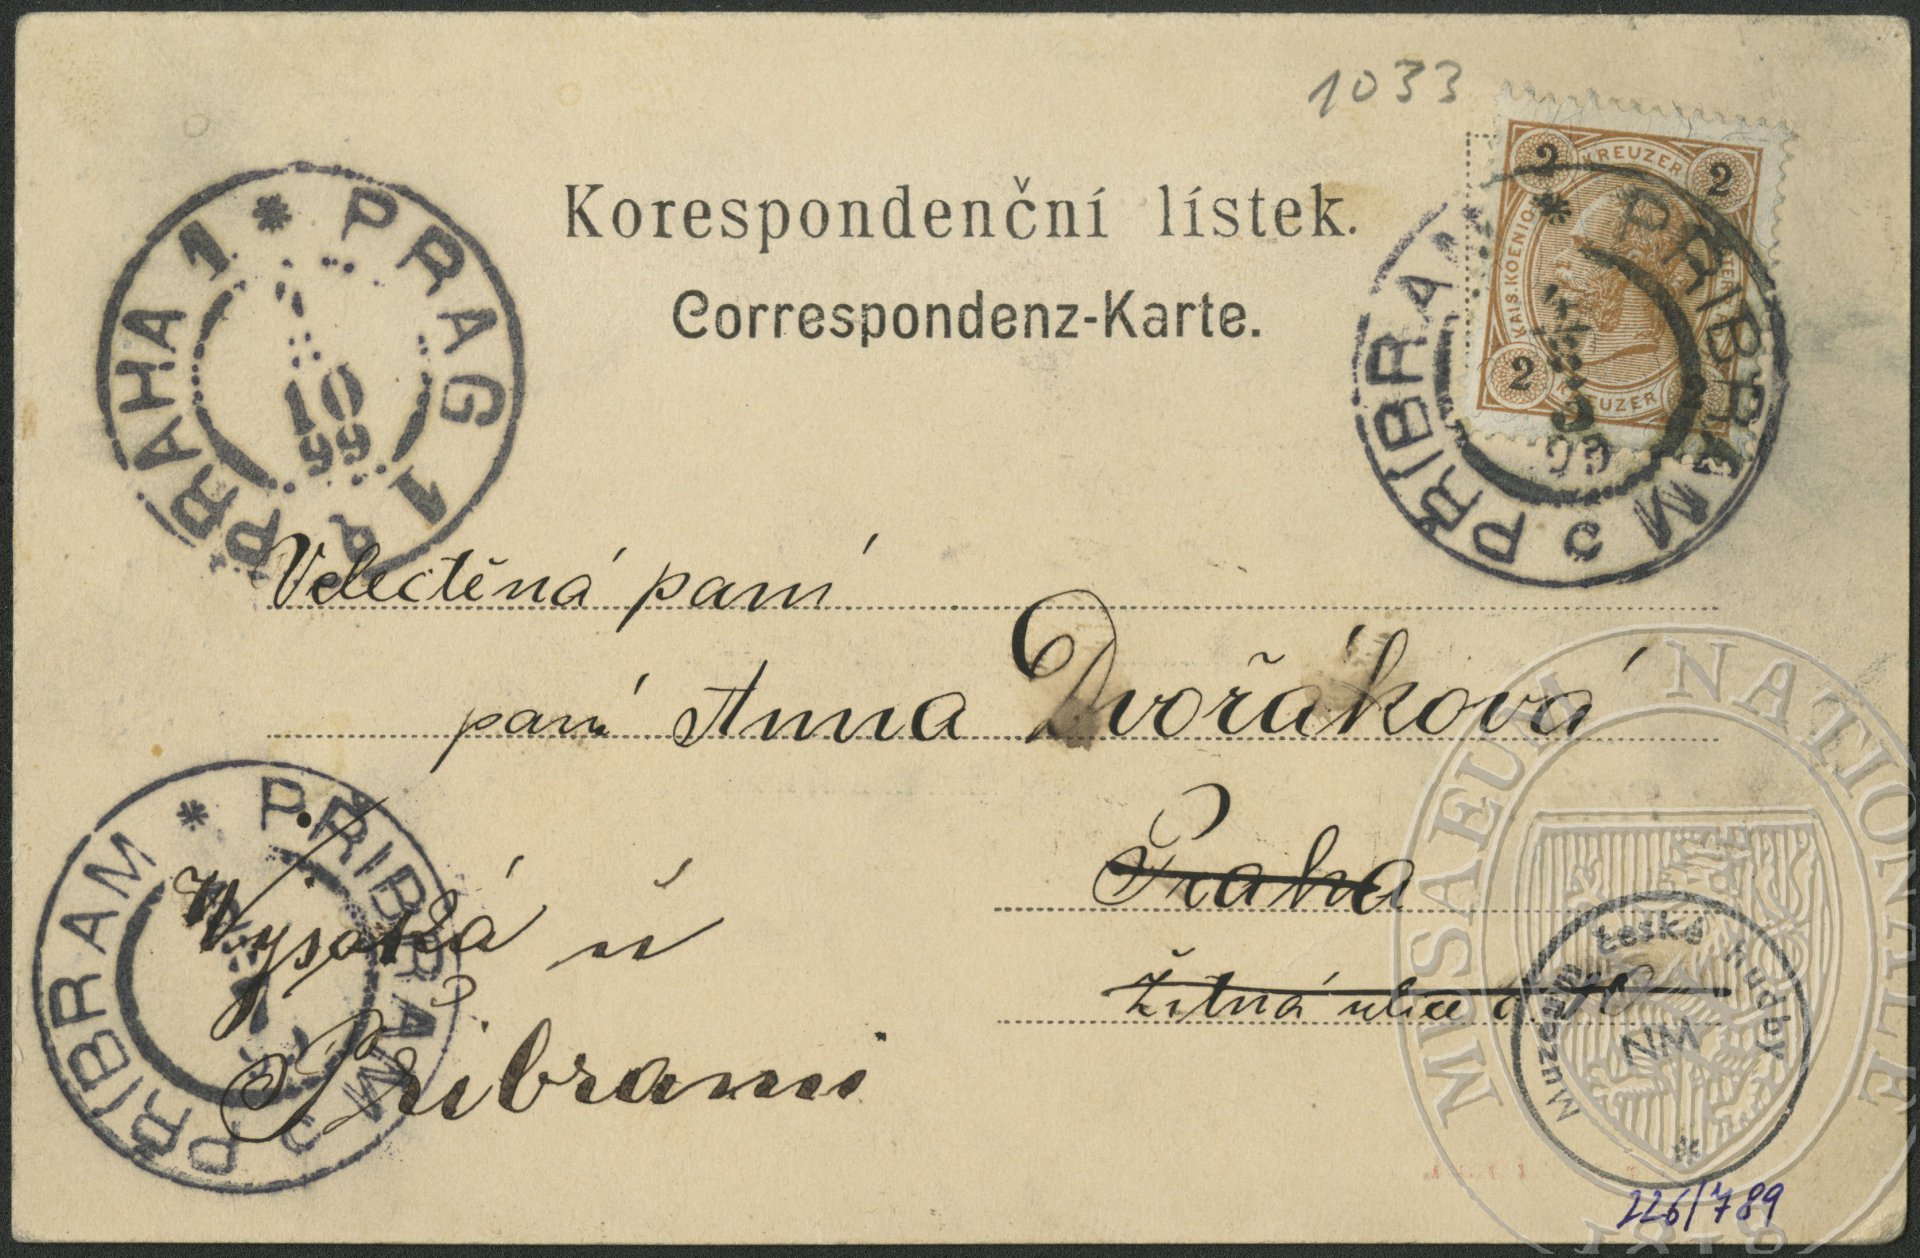 1033
Korespondenční lístek.
Correspondenz-Karte.
PRAHA 1 * PRAG 1
10
99
2 KREUZER 2
KAIS. KOENIG.
2 KREUZER 2
PŘIBRAM * PŘIBRAM
99
Velectěná paní
paní Anna Dvořáková
Praha
Žitná ulice
Vysoká u
Přibrami
PŘIBRAM * PŘIBRAM
MUSAEUM NATIONALE
Muzeum české hudby
NM
*
226/789
1818